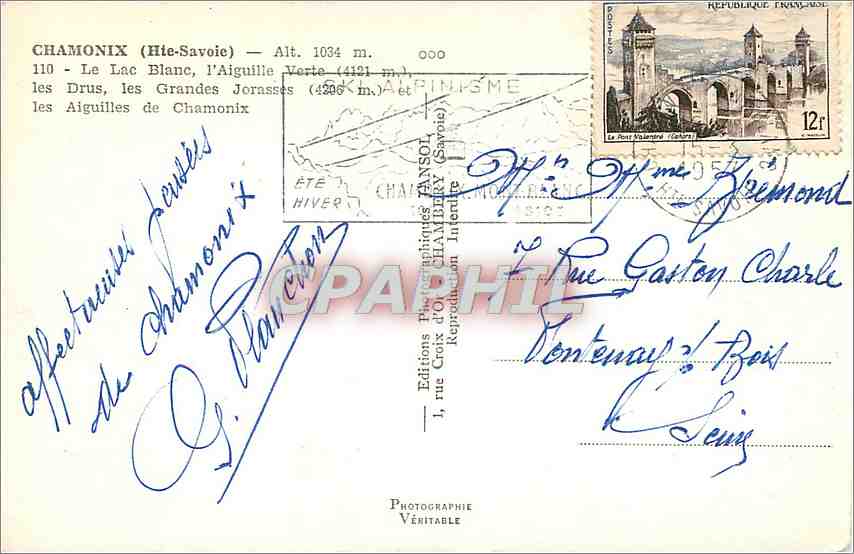 CHAMONIX (Hte-Savoie) — Alt. 1034 m.
110 - Le Lac Blanc, l'Aiguille Verte (4121 m.),
les Drus, les Grandes Jorasses (4206 m.) et
les Aiguilles de Chamonix
SKI ALPINISME
ÉTÉ
HIVER
CHAMONIX MONT-BLANC
REPUBLIQUE FRANÇAISE
POSTES
Le Pont Valentré (Cahors)
12f
HTE SAVOIE
affectueuses pensées
de chamonix
G. Planchon
Editions Photographiques TANSOL
1, rue Croix d'Or, CHAMBÉRY (Savoie)
Reproduction Interdite
Mr Mme Brémond
7 Rue Gaston Charle
Fontenay s/s Bois
Seine
CPAPHIL
PHOTOGRAPHIE
VÉRITABLE